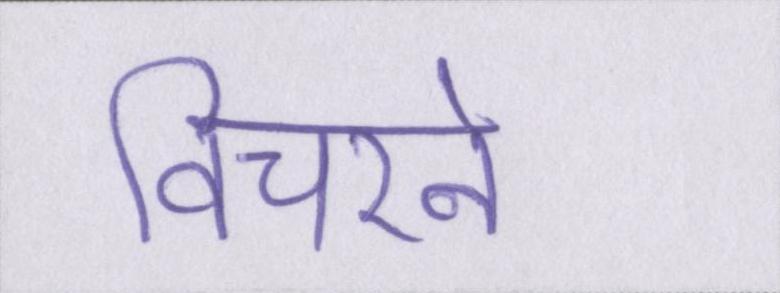 विचरने